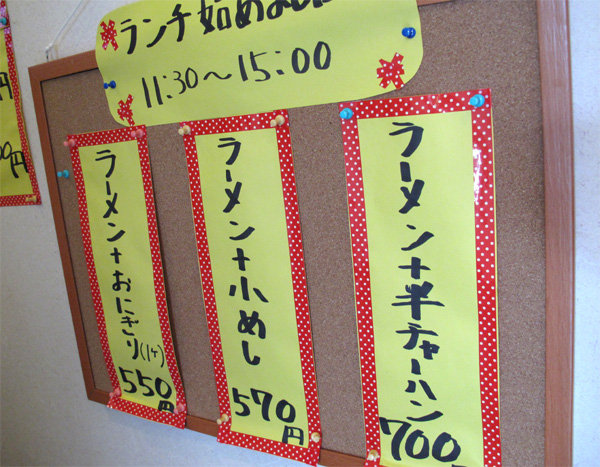 ランチ始めました
11:30～15:00
ラーメン+半チャーハン
700
ラーメン+小めし
570円
ラーメン+おにぎり(1ケ)
550円
円